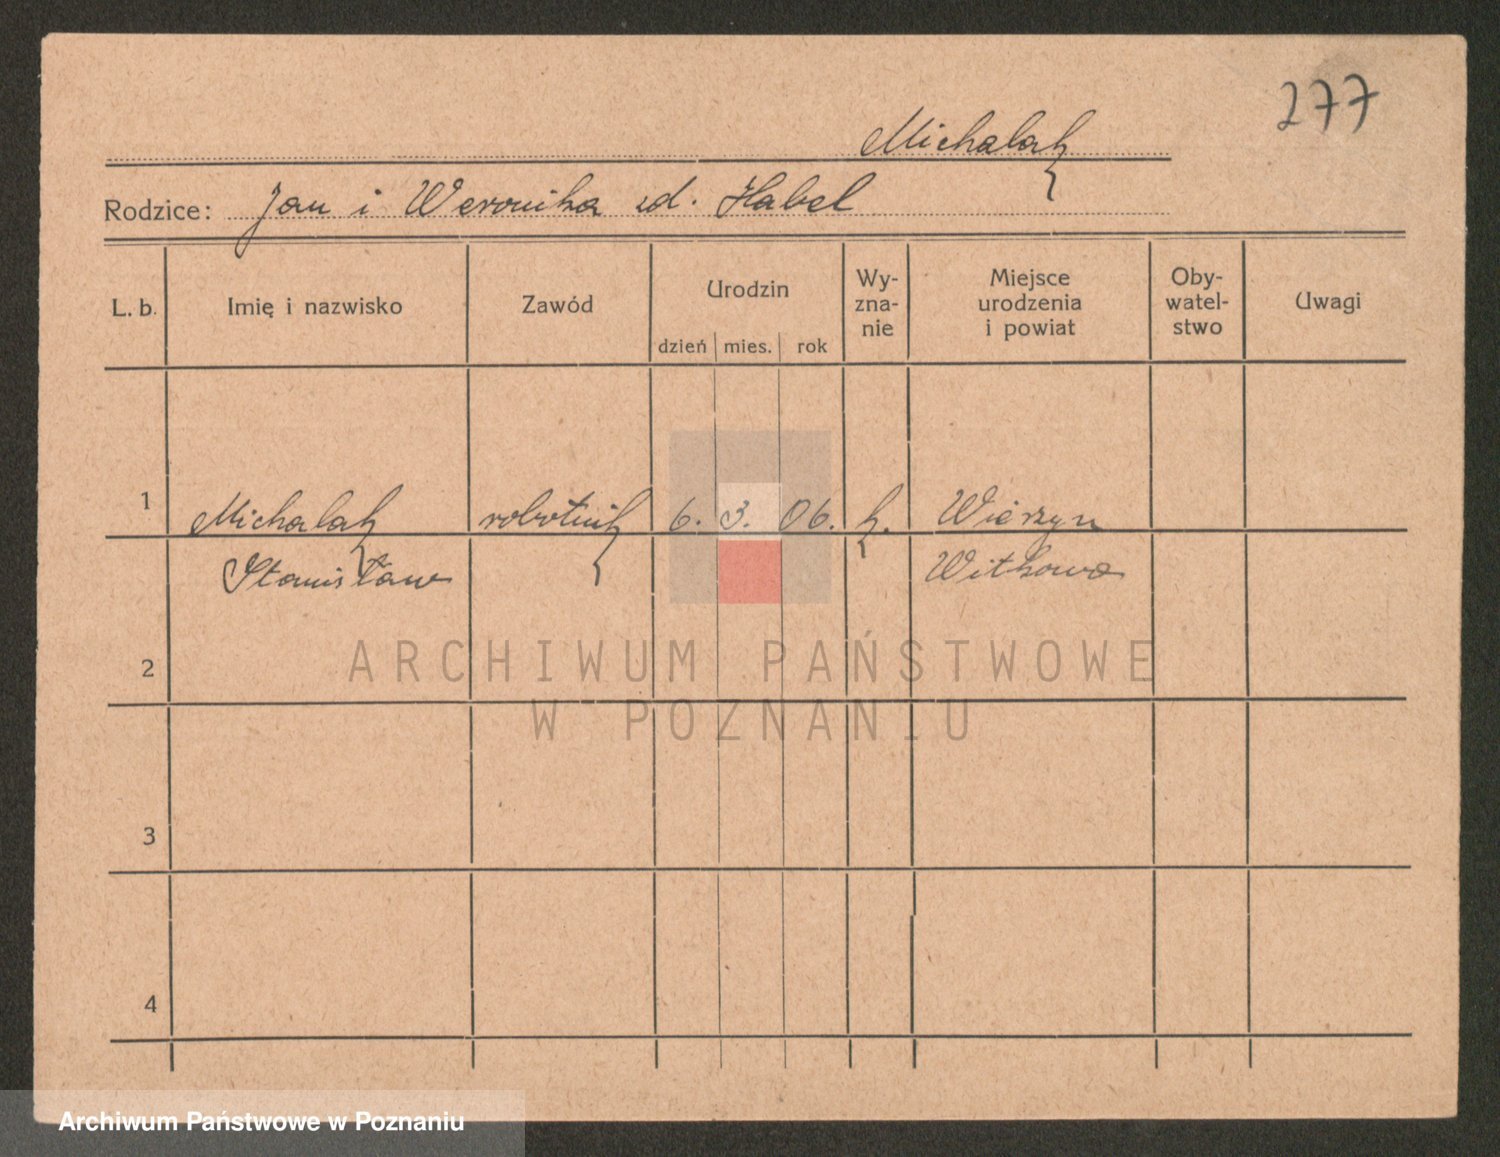 277
Michalak
Rodzice: Jan i Weronika zd. Habel
L. b. Imię i nazwisko Zawód Urodzin Wy-zna-nie Miejsce urodzenia i powiat Oby-watel-stwo Uwagi
dzień mies. rok
1 Michalak robotnik 6. 3. 06. k. Wierzyn
Stanisław Witkowo
2
ARCHIWUM PAŃSTWOWE
W POZNANIU
3
4
Archiwum Państwowe w Poznaniu